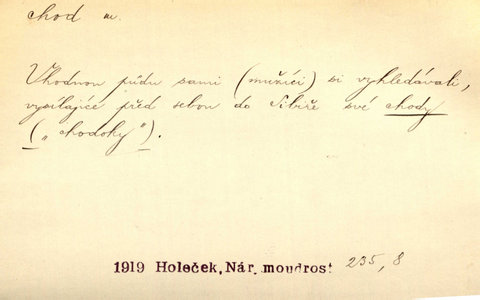 chod m.
Vhodnou půdu sami (mužíci) si vyhledávali,
vysílajíce před sebou do Sibiře své chody
("chodoky").
1919 Holeček, Nár. moudrost 235, 8